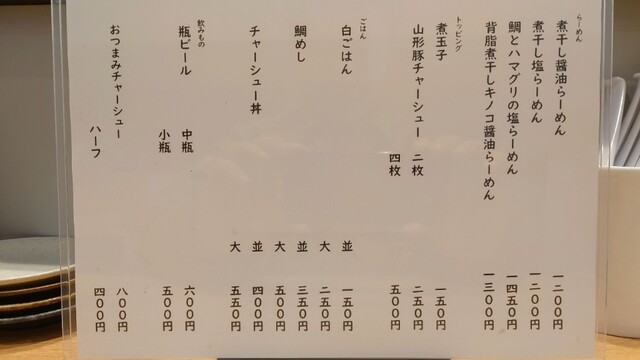 らーめん
煮干し醤油らーめん 一二〇〇円
煮干し塩らーめん 一二〇〇円
鯛とハマグリの塩らーめん 一四五〇円
背脂煮干しキノコ醤油らーめん 一三〇〇円
トッピング
煮玉子 一五〇円
山形豚チャーシュー 二枚 二五〇円
四枚 五〇〇円
ごはん
白ごはん 並 一五〇円
大 二五〇円
鯛めし 並 三五〇円
大 五〇〇円
チャーシュー丼 並 四〇〇円
大 五五〇円
飲みもの
瓶ビール 中瓶 六〇〇円
小瓶 五〇〇円
おつまみチャーシュー 八〇〇円
ハーフ 四〇〇円